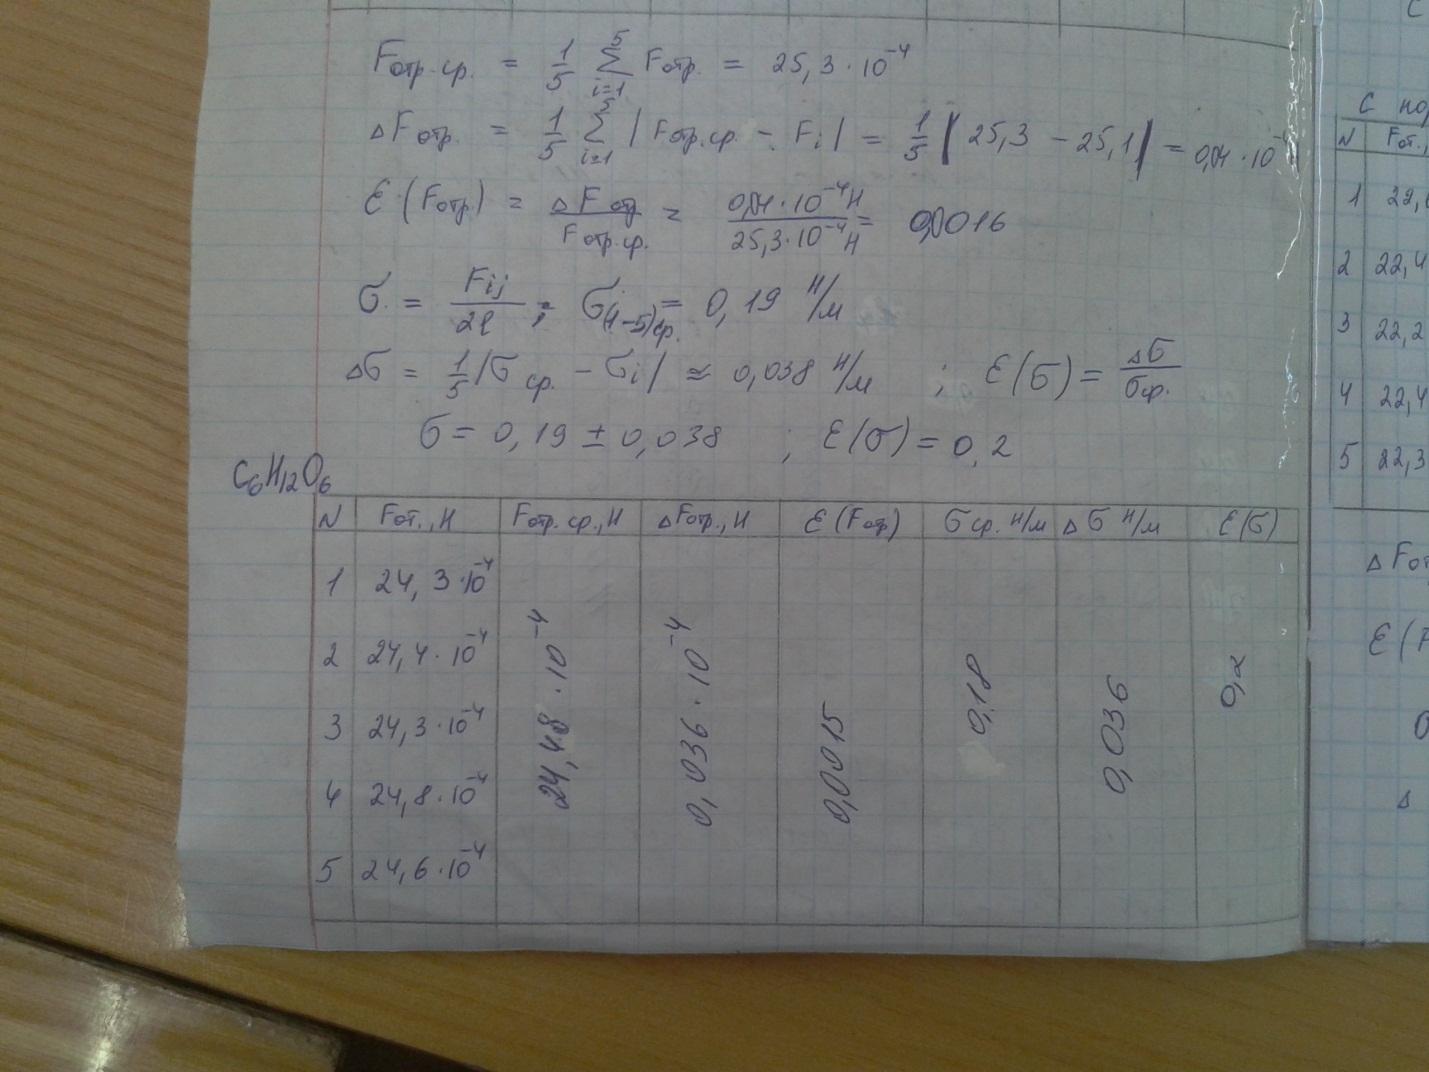 Fотр.ср. = 1/5 5Σi=1 Fотр. = 25,3·10⁻⁴
ΔFотр. = 1/5 5Σi=1 |Fотр.ср. - Fi| = 1/5 |25,3 - 25,1| = 0,04·10⁻
ε(Fотр) = ΔFотр/Fотр.ср. = 0,04·10⁻⁴Н/25,3·10⁻⁴Н = 0,0016
σ = Fij/2ℓ ; σ(1-5)ср. = 0,19 Н/м
Δσ = 1/5|σср. - σi| ≈ 0,038 Н/м ; ε(σ) = Δσ/σср.
σ = 0,19 ± 0,038 ; ε(σ) = 0,2
C₆H₁₂O₆
N Fот., Н Fотр.ср., Н ΔFотр., Н ε(Fотр) σср. Н/м Δσ Н/м ε(σ)
1 24,3·10⁻⁴
2 24,4·10⁻⁴
3 24,3·10⁻⁴
4 24,8·10⁻⁴
5 24,6·10⁻⁴
24,48·10⁻⁴
0,036·10⁻⁴
0,0015
0,18
0,036
0,2
с
N Fот.,
1 22,
2 22,4
3 22,2
4 22,4
5 22,3
ΔFот
ε(F
Δ